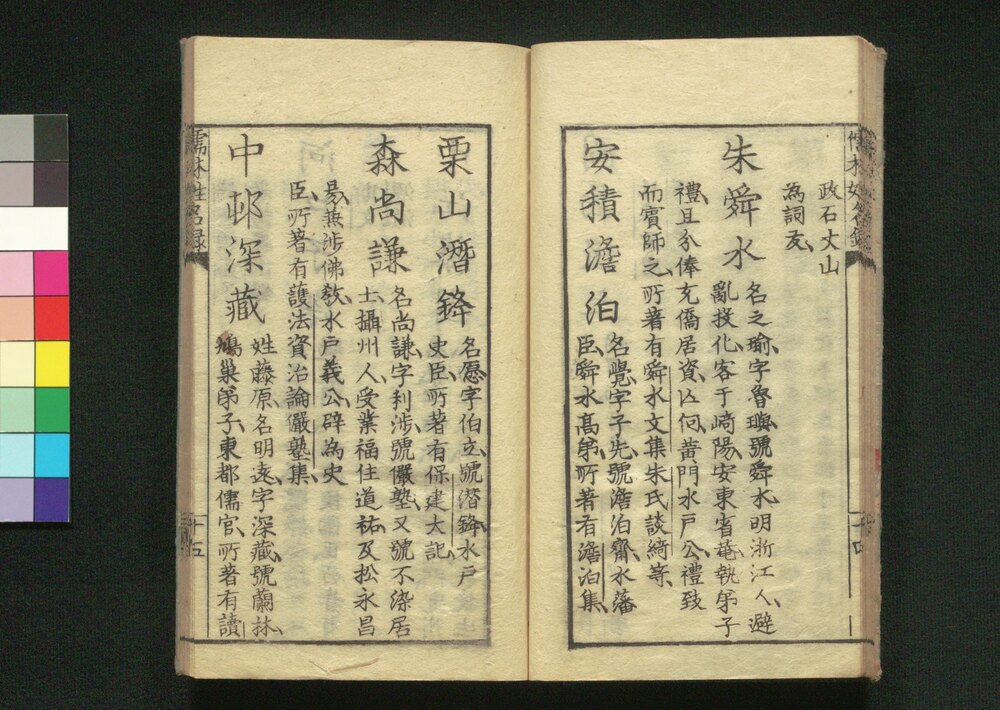 政石丈山
為詞友
朱舜水
名之瑜字魯璵號舜水明浙江人避
亂投化客于崎陽安東省菴執弟子
禮且分俸充僑居資何黄門水戸公禮致
而賓師之所著有舜水文集朱氏談綺等
安積澹泊
名覺字子先號澹泊齋水藩
臣舜水髙弟所著有澹泊集
栗山潛鋒
名愿字伯立號潛鋒水戸
史臣所著有保建大記
森尚謙
名尚謙字利渉號儼塾又號不染居
士攝州人受業福住道祐及松永昌
易兼渉佛教水戸義公辟為史
臣所著有護法資治論儼塾集
中邨深藏
姓藤原名明遠字深藏號蘭林
鳩巢弟子東都儒官所著有讀
儒林姓名録